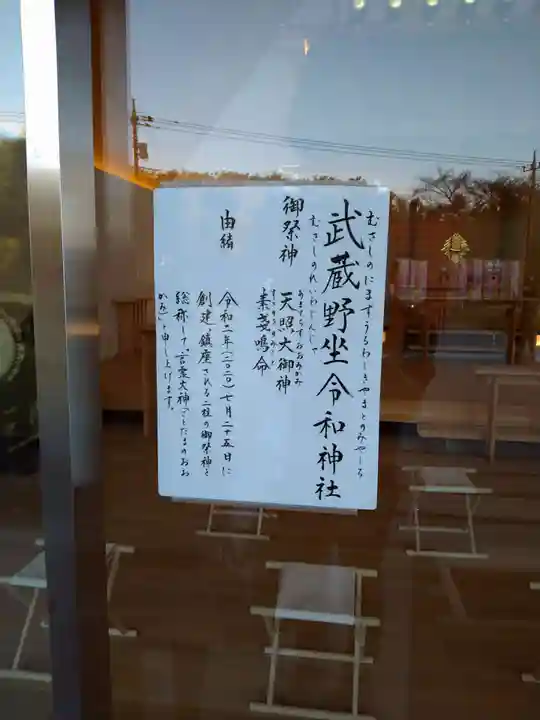 むさしのにますうるわしきやまとのみやしろ
武蔵野坐令和神社
むさしのれいわじんじゃ
御祭神
天照大御神
あまてらすおおみかみ
素戔嗚命
すさのをのみこと
由緒
令和二年(二〇二〇)七月二十五日に
創建鎮座される二柱の御祭神を
総称して、言霊大神(ことたまのおお
かみ)と申し上げます。